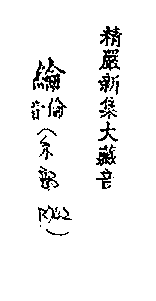 精嚴新集大藏音
綸倫音(糸部